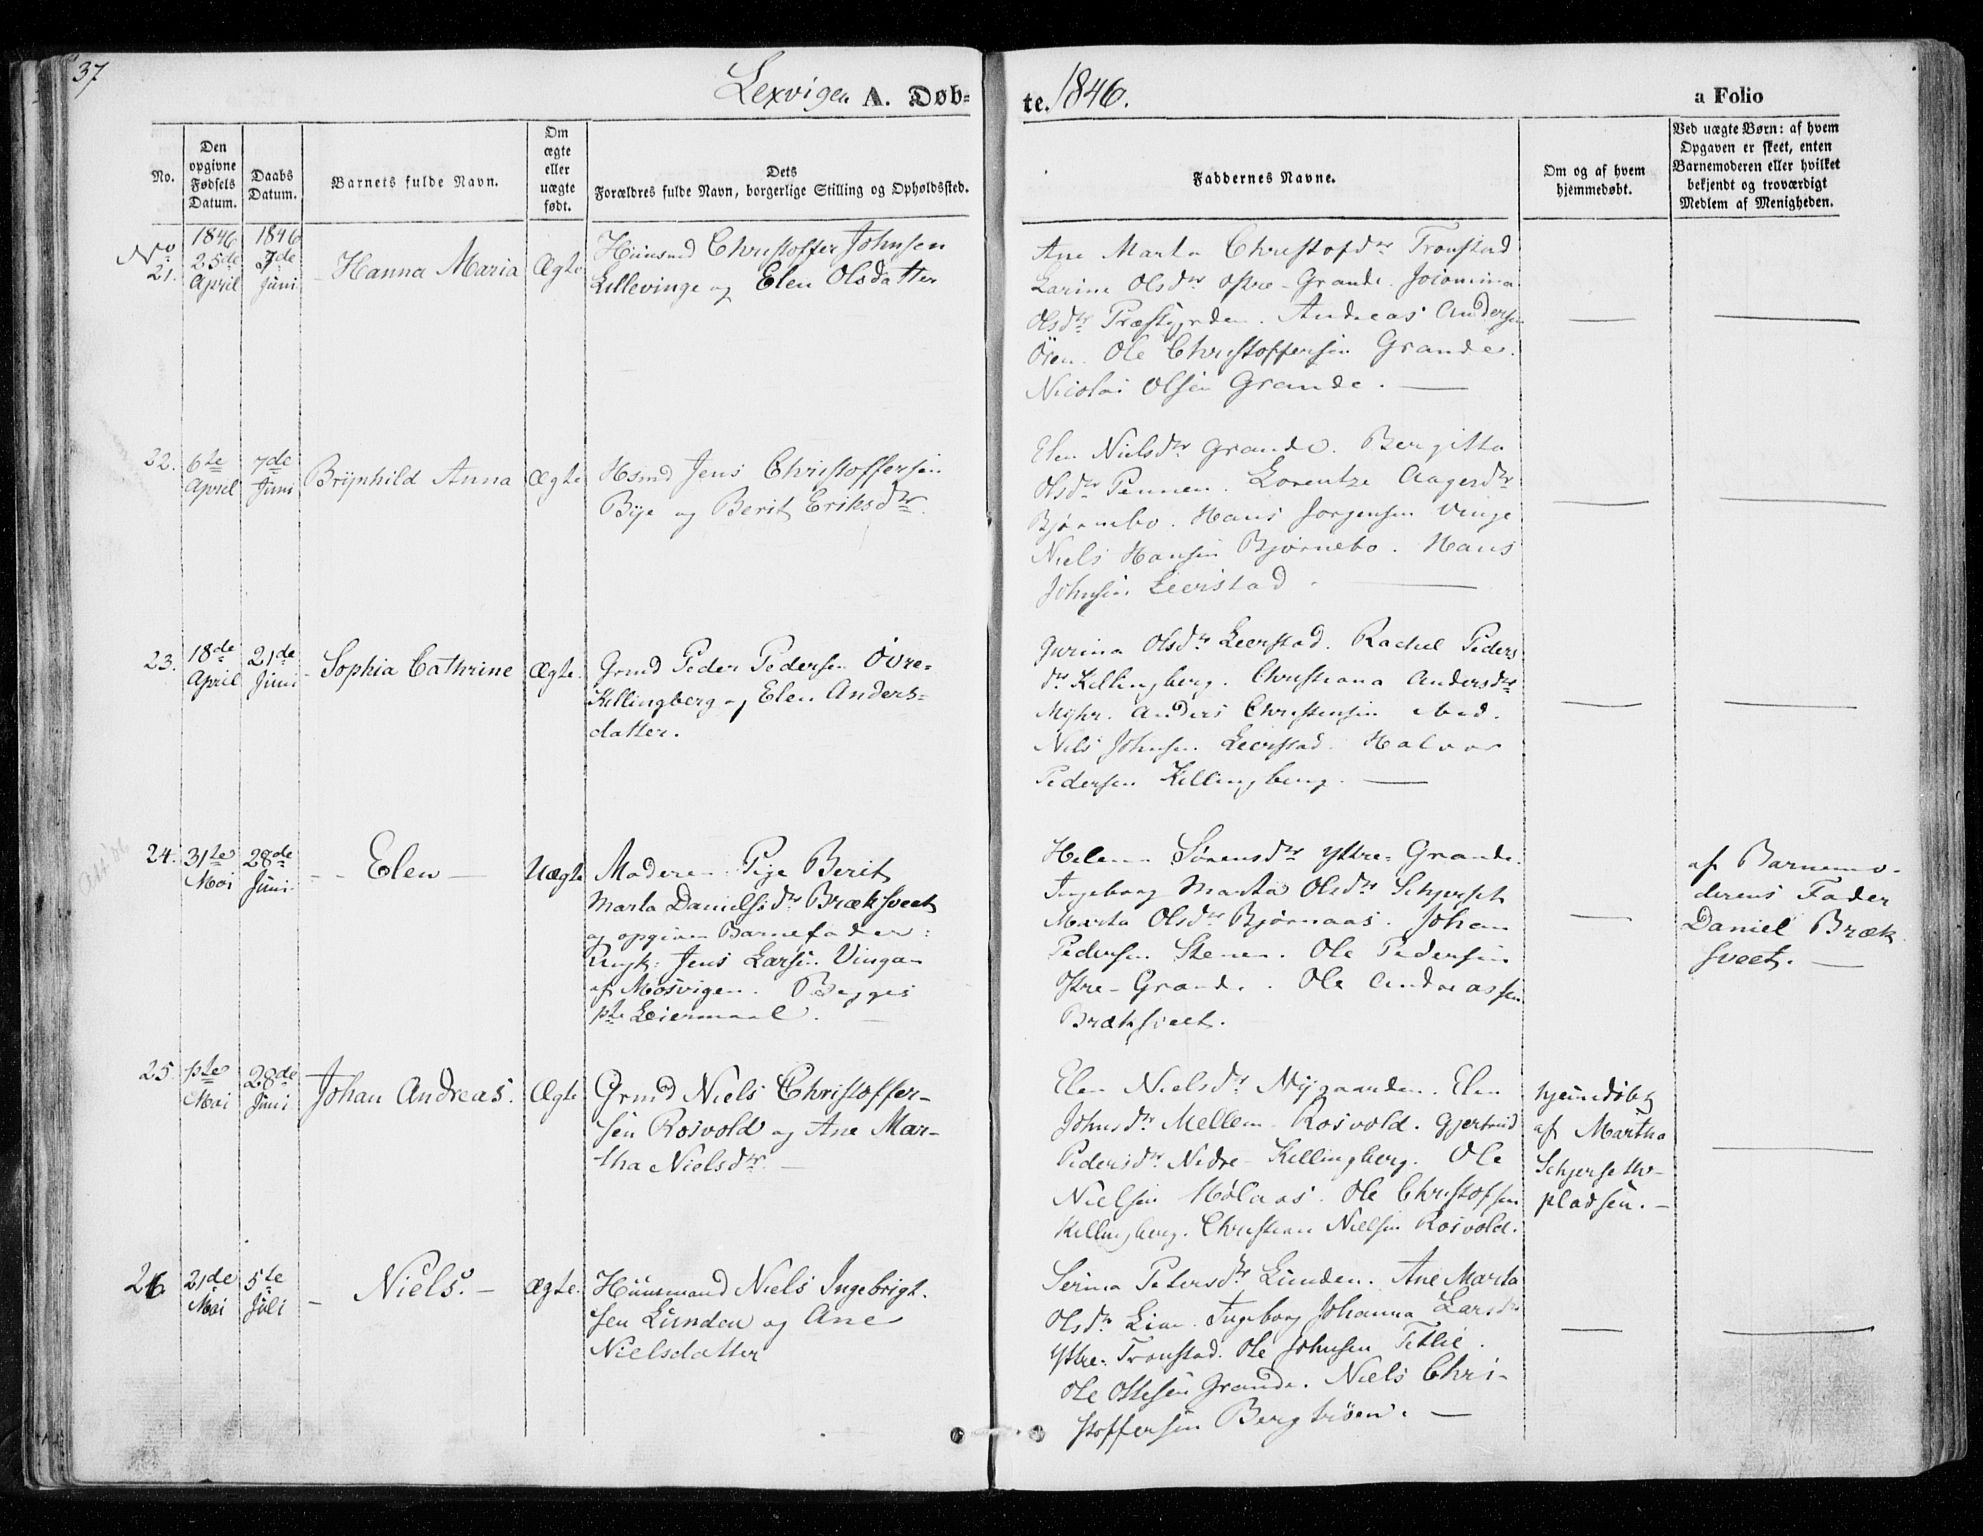 37
Lexvigen A. Døb=
te. 1846.
a Folio
No.
Den opgivne Fødsels Datum.
Daabs Datum.
Barnets fulde Navn.
Om ægte eller uægte født.
Dets Forældres fulde Navn, borgerlige Stilling og Opholdssted.
Faddernes Navne.
Om og af hvem hjemmedøbt.
Ved uægte Børn: af hvem Opgaven er skeet, enten Barnemoderen eller hvilket bekjendt og troværdigt Medlem af Menigheden.
No 21.
1846 25de April
1846 7de Juni
Hanna Maria
Ægte
Huusmd Christoffer Johnsen
Lillevinge og Elen Olsdatter
Ane Marta Christofdtr Tronstad
Karine Olsdtr østre-Grande. Jocomina
Olsdtr Præstgrden. Andreas Andersen
Öien. Ole Christoffersen Grande.
Nicolai Olsen Grande. —
22.
6te April
7de Juni
Brynhild Anna
Ægte
Hsmd Jens Christoffersen
Bye og Berit Eriksdtr
Elen Nielsdtr Grande. Bergitta
Olsdtr Pennen. Lorentze Aagesdtr
Bjørnebo. Hans Jørgensen Vinge
Niels Hansen Bjørnebo. Hans
Johnsen Leerstad. —
23.
18de April
21de Juni
Sophia Cathrine
Ægte.
Grmd Peder Pedersen Øvre=
Killingberg og Elen Anders=
datter.
Gurina Olsdtr Leerstad. Rachel Peders
dtr Killingberg. Christiana Andersdtr
Myhr. Anders Christensen ibid.
Nils Johnsen Leerstad. Halvor
Pedersen Killingberg. —
24.
31te Mai
28de Juni
Elen —
Uægte
Moderen Pige Berit
Marta Danielsdtr Brækksveet
og opgiven Barnefader:
Ungk: Jens Larsen Vingan
af Mosvigen. Begges
1ste Leiermaal. —
Helena Sörensdtr Yttre-Grande.
Ingeborg Marta Olsdtr Schjerset
Marta Olsdtr Bjørnaas. Johan
Pedersen Stenen. Ole Pedersen
Østre-Grande. Ole Andreassen
Brækksveet.
—
af Barnemo-
derens Fader
Daniel Bræk
sveet. —
25.
1ste Mai
28de Juni
Johan Andreas.
Ægte
Grmd Niels Christoffer-
sen Rosvold og Ane Mar-
tha Nielsdtr. —
Elen Nielsdtr Nygaarden. Elen
Johnsdtr Mellem-Rosvold. Gjertrud
Pedersdtr Nedre-Killingberg. Ole
Nielsen Hølaas. Ole Christofsen
Killingberg. Christian Nielsen Rosvold.
hjemmedøbt
af Martha
Schjerseth-
pladsen. —
26
21de Mai
5te Juli
Niels. —
Ægte.
Huusmand Niels Ingebrigt-
sen Lunden og Ane
Nielsdatter
Serina Petersdtr Lunden. Ane Marta
Olsdtr Lian. Ingeborg Johanna Larsdtr
Yttre-Tronstad. Ole Johnsen Tetlie.
Ole Ottesen Grande. Niels Chri-
stoffersen Bergtrøen. —